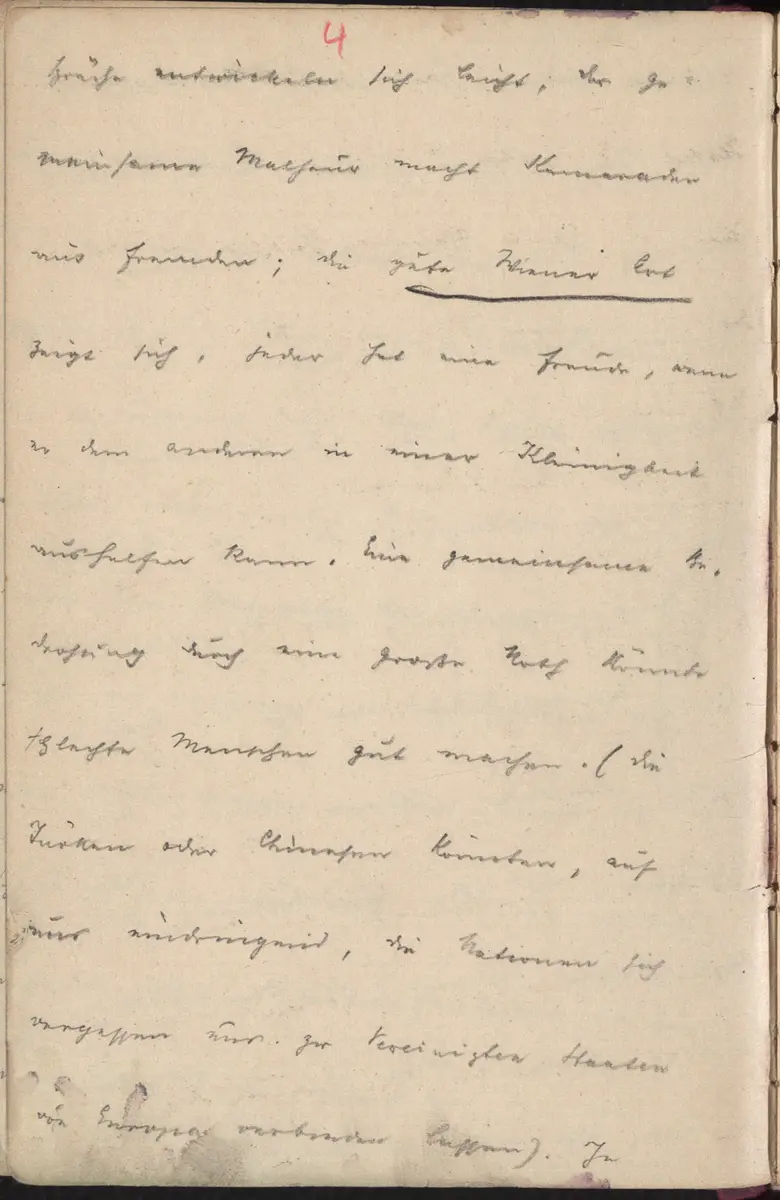 4
spräche entwickeln sich leicht; das ge-
meinsame Malheur macht Kameraden
aus Fremden; die gute Wiener Art
zeigt sich, jeder hat eine Freude, wenn
er dem anderen in einer Kleinigkeit
aushelfen kann. Eine gemeinsame Be-
drohung durch eine große Noth könnte
schlechte Menschen gut machen. (Die
Türken oder Chinesen könnten, auf
uns eindringend, die Nationen sich
vergessen und zu Vereinigten Staaten
von Europa verbinden lassen). Je